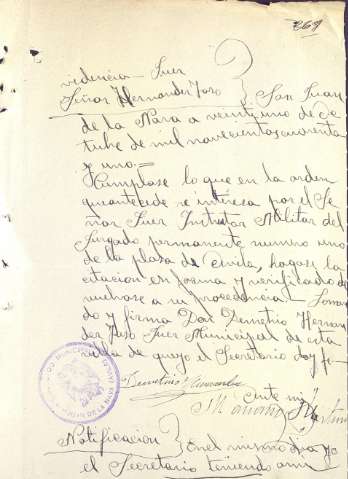 869
videncia Juez
Señor Hernandez Yuso San Juan
de la Nava a veintiuno de Oc
tubre de mil novecientos cuarenta
y uno.=
Cumplase lo que en la orden
que antecede se interesa por el Se
ñor Juez Instrutor Militar del
Juzgado permanente numero uno
de la plaza de Avila, hagase la
citacion en forma y verificado de
vuelvase a su procedencia. Lo man
do y firma Don Demetrio Hernan
dez Juez Municipal de esta
villa de que yo el Secretario doy fe-
Demetrio Hernandez
Ante mi
Martin
Notificacion En el mismo dia yo
el Secretario teniendo a mi